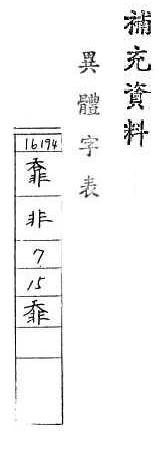 補充資料
異體字表
16194
非
7
15